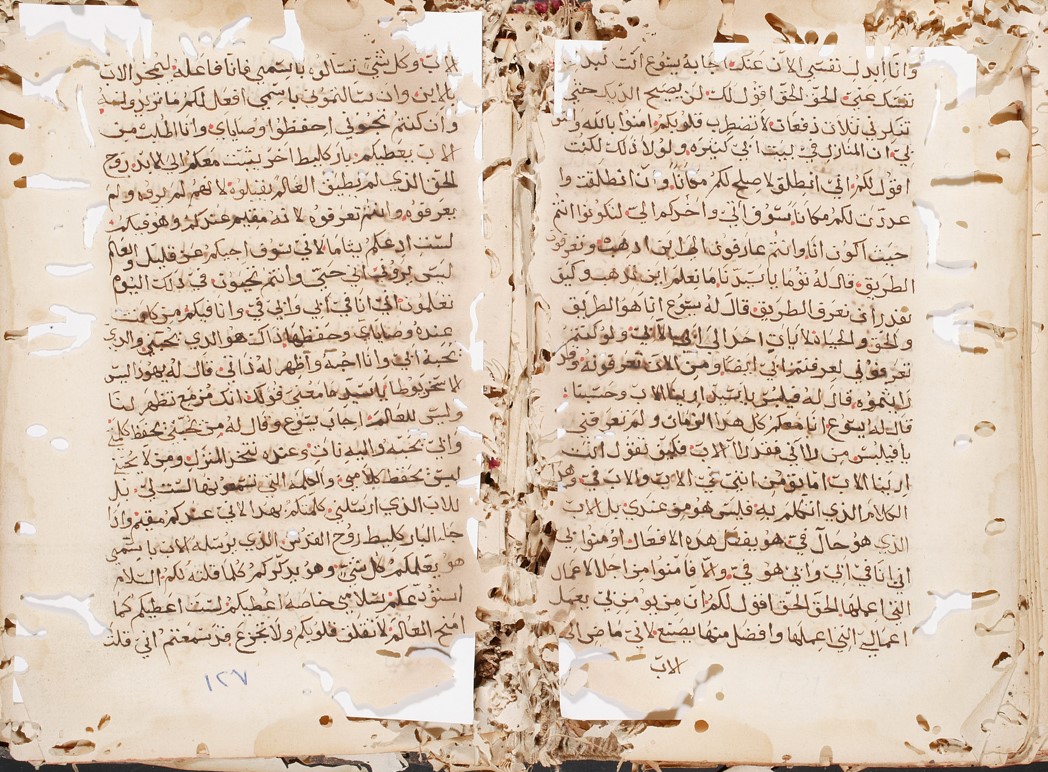 وانا ابدل نفسي الان عنك اجابه يسوع انت تبدل
نفسك عني الحق الحق اقول لك لن يصيح الديك حتى
تنكرني ثلاث دفعات لا تضطرب قلوبكم امنوا بالله و
بي ان المنازل في بيت ابي كثيره ولولا ذلك لكنت
اقول لكم اني انطلق لاصلح لكم مكانا وان انطلقت وا
عددت لكم مكانا سوف اتي واخدكم الي لتكونوا انتم
حيث اكون انا وانتم عارفون الى اين ادهب وتعرفون
الطريق قال له توما يا سيدنا ما نعلم اين تدهب وكيف
نقدر ان نعرف الطريق قال له يسوع انا هو الطريق
والحق والحياه لا يات احد الى ابي الا بي ولو كنتم
تعرفوني لعرفتم ابي ايضا ومن الان تعرفونه وقد
رايتموه قال له فيلبس يا سيد ارنا الاب وحسبنا
قال له يسوع انا معكم كل هدا الزمان ولم تعرفني
يا فيلبس من راني فقد راا الاب فكيف تقول انت
ارينا الاب اما تومن انني في الاب والاب في وهد
الكلام الذي اتكلم به فليس هو من عندي بل الاب
الذي هو حال في هو يفعل هده الافعال اومنوا بي
اني انا في ابي وابي هو في والا فامنوا من اجل الاعمال
التي اعملها الحق الحق اقول لكم ان من يومن بي يعمل
اعمالي التي اعملها وافضل منها يصنع لاني ماضي الى
الاب
الاب وكل شي تسالوه باسمي فانا فاعله ليمجد الاب
بالابن وان سالتموني باسمي افعل لكم ما تريدونه
وان كنتم تحبوني احفظوا وصاياي وانا اطلب من
الاب يعطيكم بارکليط اخر يثبت معكم الى الابد روح
الحق الذي لم يطيق العالم يقبلوه لانهم لم يروه ولم
يعرفوه وانتم تعرفوه لانه مقيم عندكم وهو فيكم
لست ادعكم يتاما لاني سوف اجيكم عن قليل والعالم
ليس يروني اني حي وانتم تحيون في ذلك اليوم
تعلمون اني انا في ابي وابي في وانا فيكم من كانت
عنده وصاياي وحفظها ذاك هو الذي يحبني والذي
يحبه ابي وانا احبه واظهر له ذاتي قال له يهودا ليس
الاسخريوطا يا سيد ما معنى قولك انك مزمع تظهر لنا
وليس للعالم اجاب يسوع وقال له من يحبني يحفظ كلمتي
وابي يحبه واليه ناتي وعنده نتخد المنزل ومن لا يحبني
ليس يحفظ كلامي والكلمه التي تسمعونها ليست لي بل
للاب الذي ارسلني كلمتكم بهدا لاني عندكم مقيم واذا
جا البارکليط روح القدس الذي يرسله الاب باسمي
هو يعلمكم كل شي وهو يدكركم كلما قلته لكم السلام
استودعكم سلامي خاصه اعطيكم لست اعطيكم كما
امنح العالم لا تقلق قلوبكم ولا تجزع قد سمعتم اني قلت
١٢٧